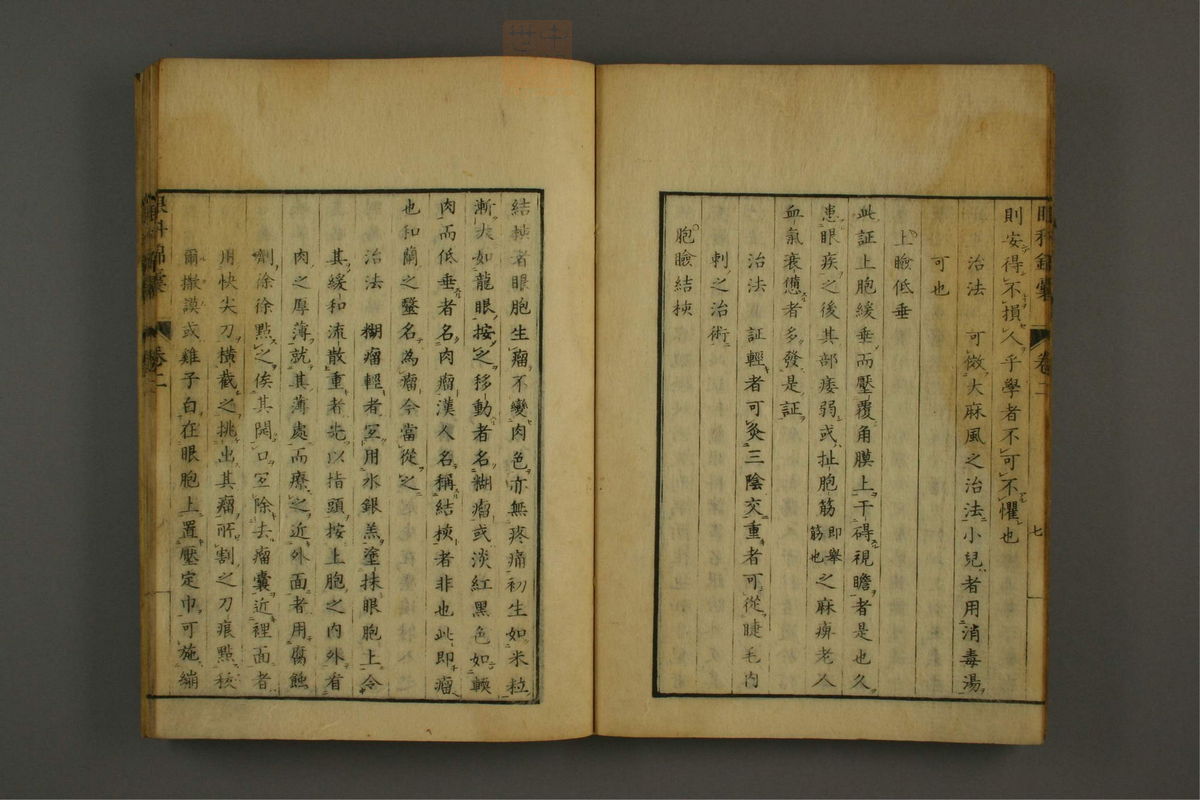 眼科錦囊 卷二 七
則安得不損人乎學者不可不懼也
治法 可倣大麻風之治法小兒者用消毒湯
可也
上瞼低垂
此証上胞緩垂而壓覆角膜上干碍視瞻者是也久
患眼疾之後其部痿弱或扯胞筋即舉筋也之麻痺老人
血氣衰憊者多發是証
治法 証輕者可灸三陰交重者可從睫毛內
刺之治術
胞瞼結核
結核者眼胞生瘤不變肉色亦無疼痛初生如米粒
漸大如龍眼按之移動者名糊瘤或淡紅黑色如輭
肉而低垂者名肉瘤漢人名稱結核者非也此即瘤
也和蘭之毉名為瘤今當從之
治法 糊瘤輕者宜用水銀羔塗抹眼胞上令
其緩和流散重者先以指頭按上胞之內外看
肉之厚薄就其薄處而療之近外面者用腐蝕
劑徐徐點之俟其開口宜除去瘤囊近裡面者
用快尖刀橫截之挑出其瘤所割之刀痕點
爾撒謨或雞子白在眼胞上置壓定巾可施繃
眼科錦囊 卷二